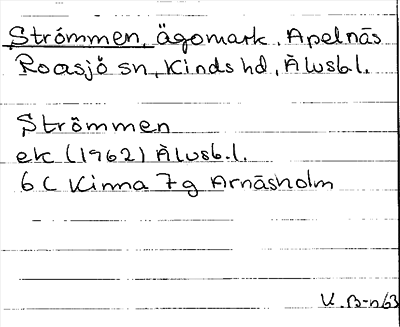 Strömmen, ägomark, Apelnäs
Roasjö sn, Kinds hd, Älvsb.l.
Strömmen
ek (1962) Älvsb.l.
6 C Kinna 7g Arnäsholm
U.B-n63